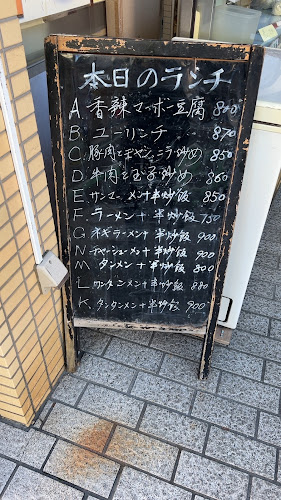 本日のランチ
A. 香辣マーボ豆腐 860
B. ユーリンチ … 870
C. 豚肉とキャベツニラ炒め 850
D. 牛肉と玉子炒め 860
E. サンマーメン+半炒飯 850
F. ラーメン+半炒飯 750
G. ネギラーメン+半炒飯 900
N. チャーシューメン+半炒飯 900
M. タンメン+半炒飯 800
L. ワンタンメン+半炒飯 880
K. タンタンメン+半炒飯 900